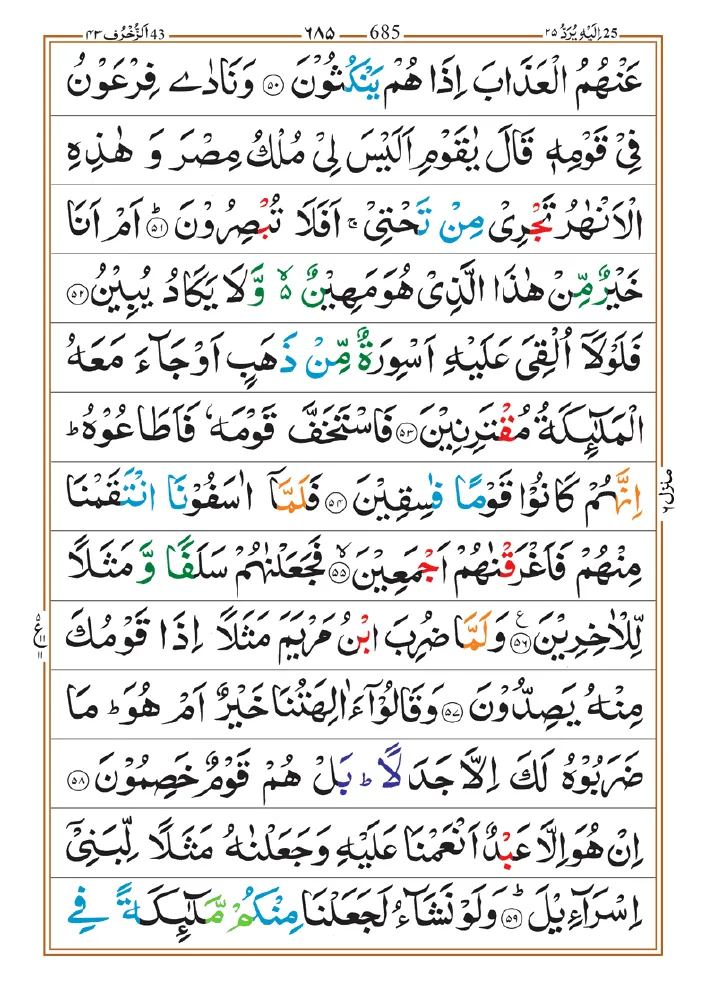 اِلَيْهِ يُرَدُّ ٢٥ 25 685 ٦٨٥ 43 اَلزُّخْرُف ٤٣
عَنْهُمُ الْعَذَابَ اِذَا هُمْ يَنْكُثُوْنَ ۝٥٠ وَنَادٰى فِرْعَوْنُ
فِىْ قَوْمِهٖ قَالَ يٰقَوْمِ اَلَيْسَ لِىْ مُلْكُ مِصْرَ وَ هٰذِهِ
الْاَنْهٰرُ تَجْرِىْ مِنْ تَحْتِىْ ۚ اَفَلَا تُبْصِرُوْنَ ؕ ۝٥١ اَمْ اَنَا
خَيْرٌ مِّنْ هٰذَا الَّذِىْ هُوَ مَهِيْنٌ ۙ۬ وَّلَا يَكَادُ يُبِيْنُ ۝٥٢
فَلَوْلَاۤ اُلْقِىَ عَلَيْهِ اَسْوِرَةٌ مِّنْ ذَهَبٍ اَوْ جَآءَ مَعَهُ
الْمَلٰٓئِكَةُ مُقْتَرِنِيْنَ ۝٥٣ فَاسْتَخَفَّ قَوْمَهٗ فَاَطَاعُوْهُ ؕ
اِنَّهُمْ كَانُوْا قَوْمًا فٰسِقِيْنَ ۝٥٤ فَلَمَّاۤ اٰسَفُوْنَا انْتَقَمْنَا
مِنْهُمْ فَاَغْرَقْنٰهُمْ اَجْمَعِيْنَ ۙ ۝٥٥ فَجَعَلْنٰهُمْ سَلَفًا وَّ مَثَلًا
لِّلْاٰخِرِيْنَ ۝٥٦ ع وَلَمَّا ضُرِبَ ابْنُ مَرْيَمَ مَثَلًا اِذَا قَوْمُكَ
مِنْهُ يَصِدُّوْنَ ۝٥٧ وَقَالُوْٓا ءَاٰلِهَتُنَا خَيْرٌ اَمْ هُوَ ؕ مَا
ضَرَبُوْهُ لَكَ اِلَّا جَدَلًا ؕ بَلْ هُمْ قَوْمٌ خَصِمُوْنَ ۝٥٨
اِنْ هُوَ اِلَّا عَبْدٌ اَنْعَمْنَا عَلَيْهِ وَجَعَلْنٰهُ مَثَلًا لِّبَنِىْۤ
اِسْرَآءِيْلَ ؕ ۝٥٩ وَلَوْ نَشَآءُ لَجَعَلْنَا مِنْكُمْ مَّلٰٓئِكَةً فِى
منزل ٦